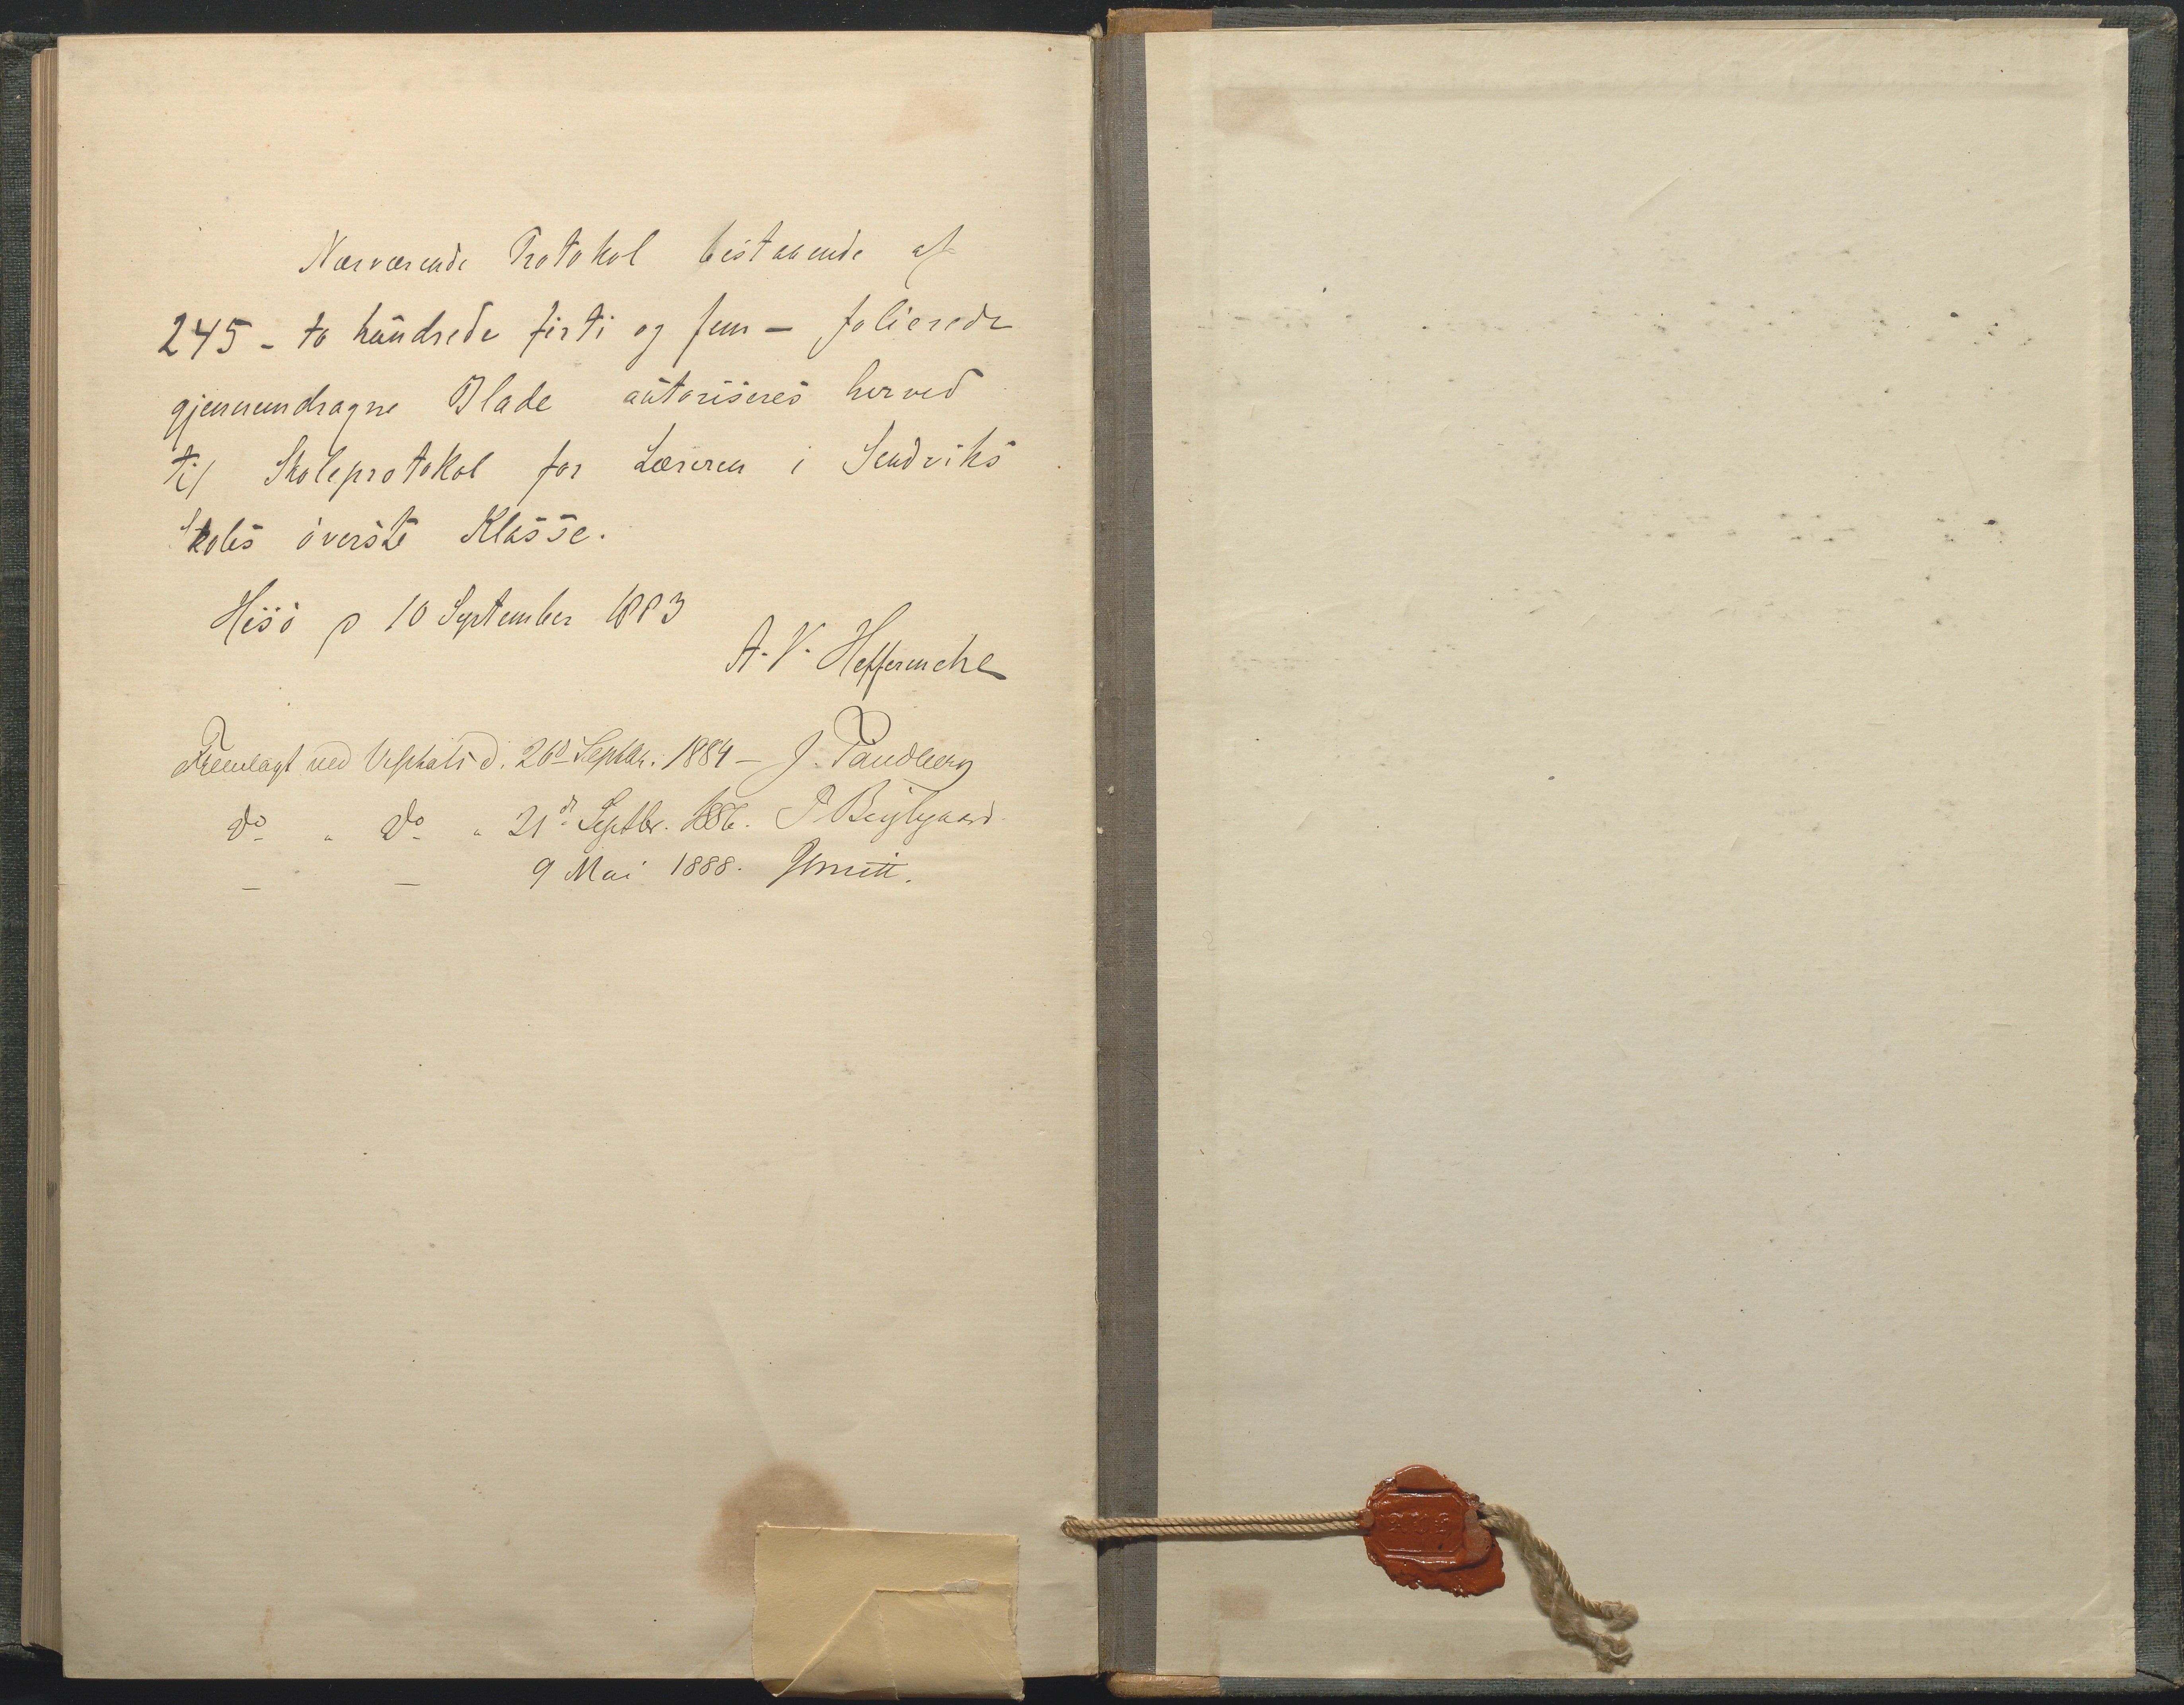 Nærværende Protokol bestaaende af
245 - to hundrede firti og fem - folierede
gjennemdragne Blade autoriseres herved
til Skoleprotokol for Læreren i Sandviks
Skoles øverste Klasse.
Hisø p 10 September 1883
A. V. Heffermehl
Fremlagt ved Visitats d. 26d Septbr. 1884 - J. Tandberg
Do " Do " 21d Septbr. 1886.
— — 9 Mai 1888. Smitt.